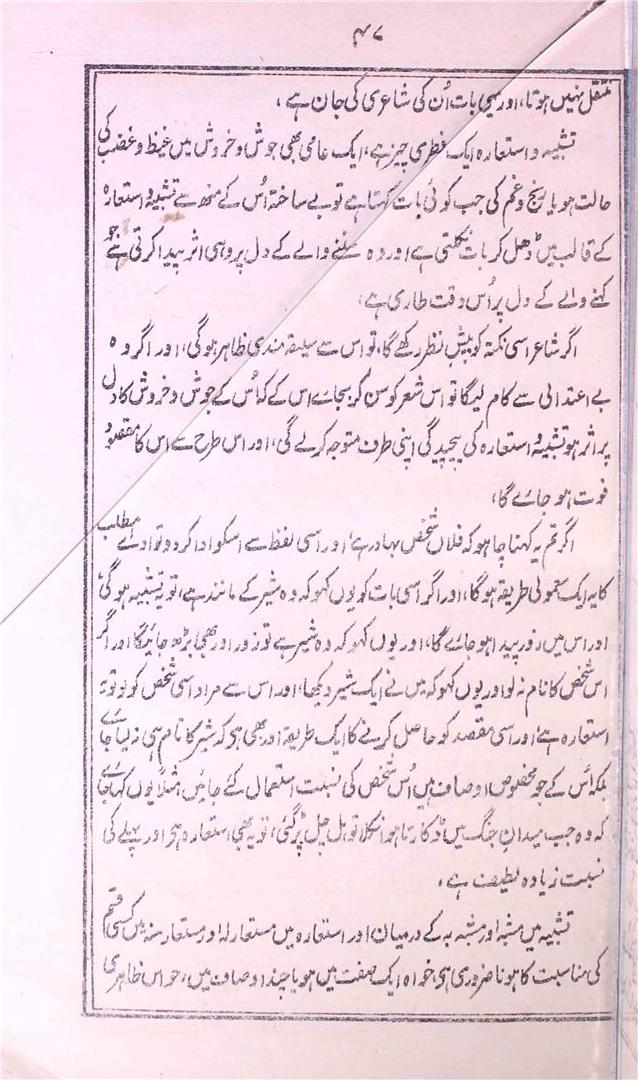 ۴۷
منتقل نہیں ہوتا، اور یہی بات اُن کی شاعری کی جان ہے،
تشبیہ و استعارہ ایک فطری چیز ہے، ایک عامی بھی جوش و خروش میں غیظ و غضب کی
حالت ہو یا رنج و غم کی جب کوئی بات کہتا ہے تو بے ساختہ اُس کے منہ سے تشبیہ و استعارہ
کے قالب میں ڈھل کر بات نکلتی ہے اور وہ سننے والے کے دل پر وہی اثر پیدا کرتی ہے جو
کہنے والے کے دل پر اُس وقت طاری ہے،
اگر شاعر اسی نکتہ کو پیش نظر رکھے گا، تو اس سے سلیقہ مندی ظاہر ہوگی، اور اگر وہ
بے اعتدالی سے کام لیگا تو اس شعر کو سن کر بجاے اس کے کہ اُس کے جوش و خروش کا دل
پر اثر ہو تشبیہ و استعارہ کی پیچیدگی اپنی طرف متوجہ کرلے گی، اور اس طرح سے اس کا مقصود
فوت ہو جائے گا،
اگر تم یہ کہنا چاہو کہ فلاں شخص بہادر ہے اور اسی لفظ سے اسکو ادا کر دو تو ادائے مطلب
کا یہ ایک معمولی طریقہ ہوگا، اور اگر اسی بات کو یوں کہو کہ وہ شیر کے مانند ہے، تو یہ تشبیہ ہوگی
اور اس میں زور پیدا ہو جائے گا، اور یوں کہو کہ وہ شیر ہے تو زور اور بھی بڑھ جائیگا اور اگر
اس شخص کا نام نہ لو اور یوں کہو کہ میں نے ایک شیر دیکھا، اور اس سے مراد اسی شخص کو لو تو یہ
استعارہ ہے اور اسی مقصد کو حاصل کرنے کا ایک طریقہ اور بھی ہو کہ شیر کا نام ہی نہ لیا جائے
بلکہ اُس کے جو مخصوص اوصاف ہیں اُس شخص کی نسبت استعمال کئے جائیں مثلاً یوں کہا جائے
کہ وہ جب میدان جنگ میں ڈکارتا ہوا نکلا تو ہل چل پڑ گئی، تو یہ بھی استعارہ ہی اور پہلے کی
نسبت زیادہ لطیف ہے،
تشبیہ میں مشبہ اور مشبہ بہ کے درمیان اور استعارہ میں مستعار لہ اور مستعار منہ میں کسی قسم
کی مناسبت کا ہونا ضروری ہی خواہ ایک صفت میں ہو یا چند اوصاف میں، حواس ظاہری